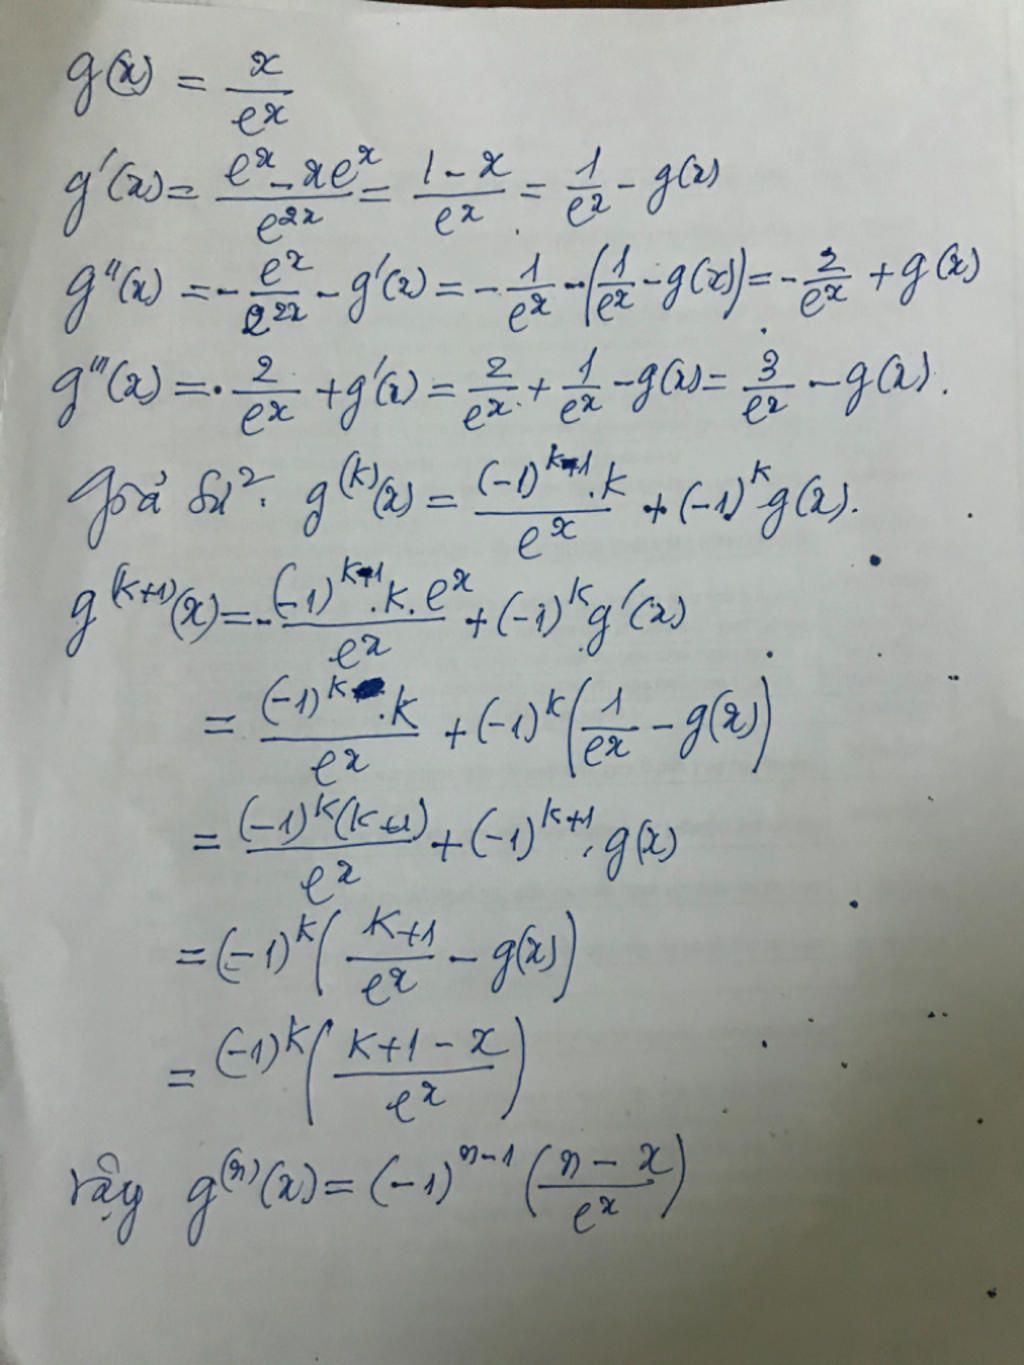 g(x) = x/e^x
g'(x) = (e^x - xe^x)/e^{2x} = (1 - x)/e^x = 1/e^x - g(x)
g''(x) = -e^x/e^{2x} - g'(x) = -1/e^x - (1/e^x - g(x)) = -2/e^x + g(x)
g'''(x) = 2/e^x + g'(x) = 2/e^x + 1/e^x - g(x) = 3/e^x - g(x).
Giả sử: g^{(k)}(x) = ((-1)^{k+1}.k)/e^x + (-1)^k g(x).
g^{(k+1)}(x) = -((-1)^{k+1}.k.e^x)/e^x + (-1)^k g'(x)
= ((-1)^k.k)/e^x + (-1)^k (1/e^x - g(x))
= ((-1)^k(k+1))/e^x + (-1)^{k+1}.g(x)
= (-1)^k ((k+1)/e^x - g(x))
= (-1)^k ((k+1-x)/e^x)
Vậy g^{(n)}(x) = (-1)^{n-1} ((n - x)/e^x)